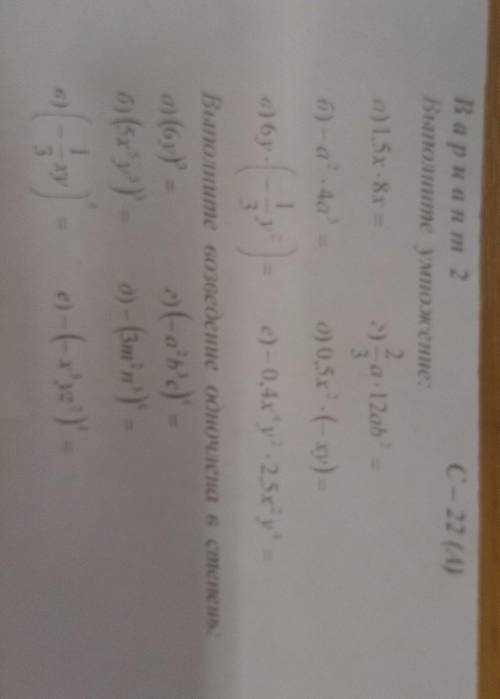 Вариант 2 С – 22 (А)
Выполните умножение:
а) 1,5x · 8x = г) 2/3 a · 12ab² =
б) – a² · 4a³ = д) 0,5x² · (– xy) =
в) 6y · (– 1/3 y²) = е) – 0,4x⁴y² · 2,5x²y⁴ =
Выполните возведение одночлена в степень:
а) (6y)³ = г) (– a²b³c)⁴ =
б) (5x²y³)³ = д) – (3m²n³)⁴ =
в) (– 1/3 xy)⁴ =